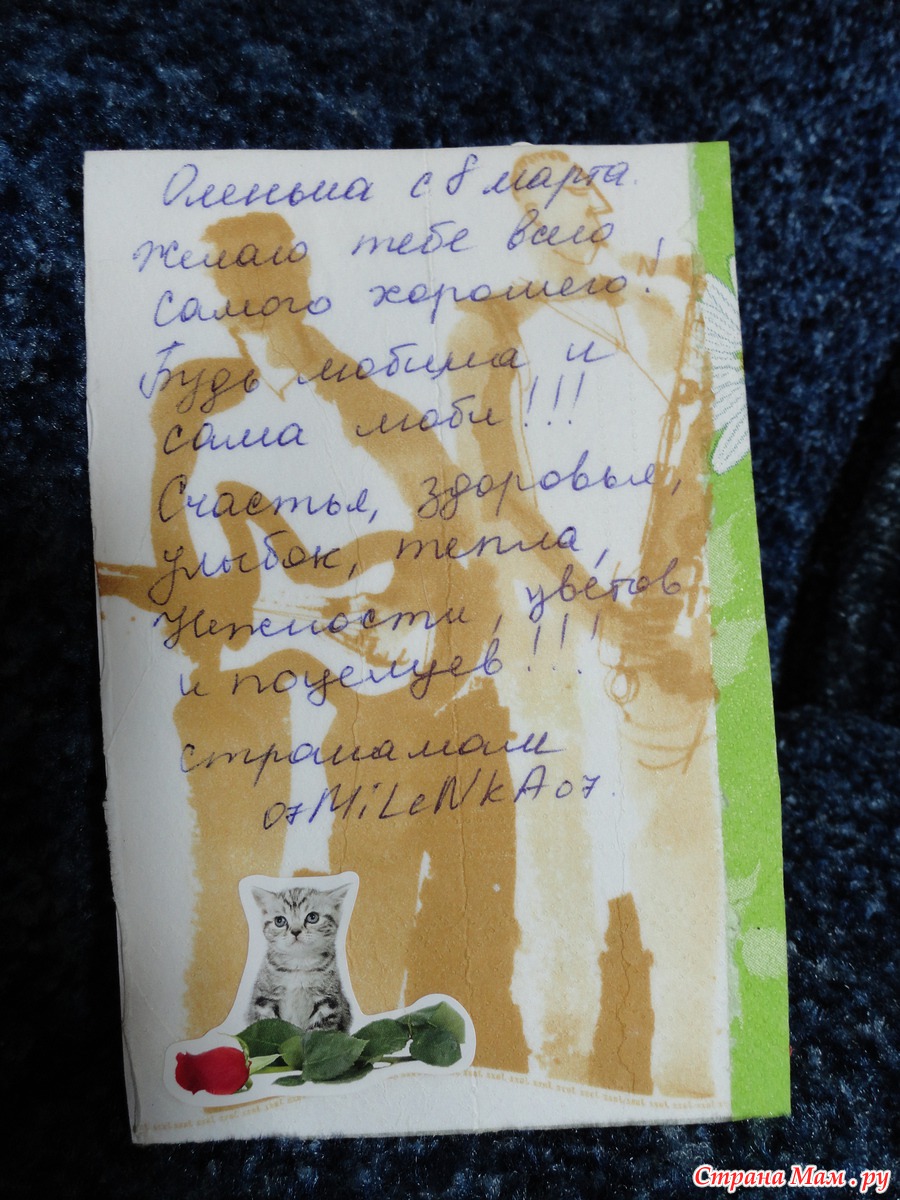 Оленька с 8 марта.
Желаю тебе всего
самого хорошего!
Будь любима и
сама люби!!!
Счастья, здоровья,
улыбок, тепла,
нежности, цветов
и поцелуев!!!
странамам
07MiLeNkA07.
Страна Мам.ру